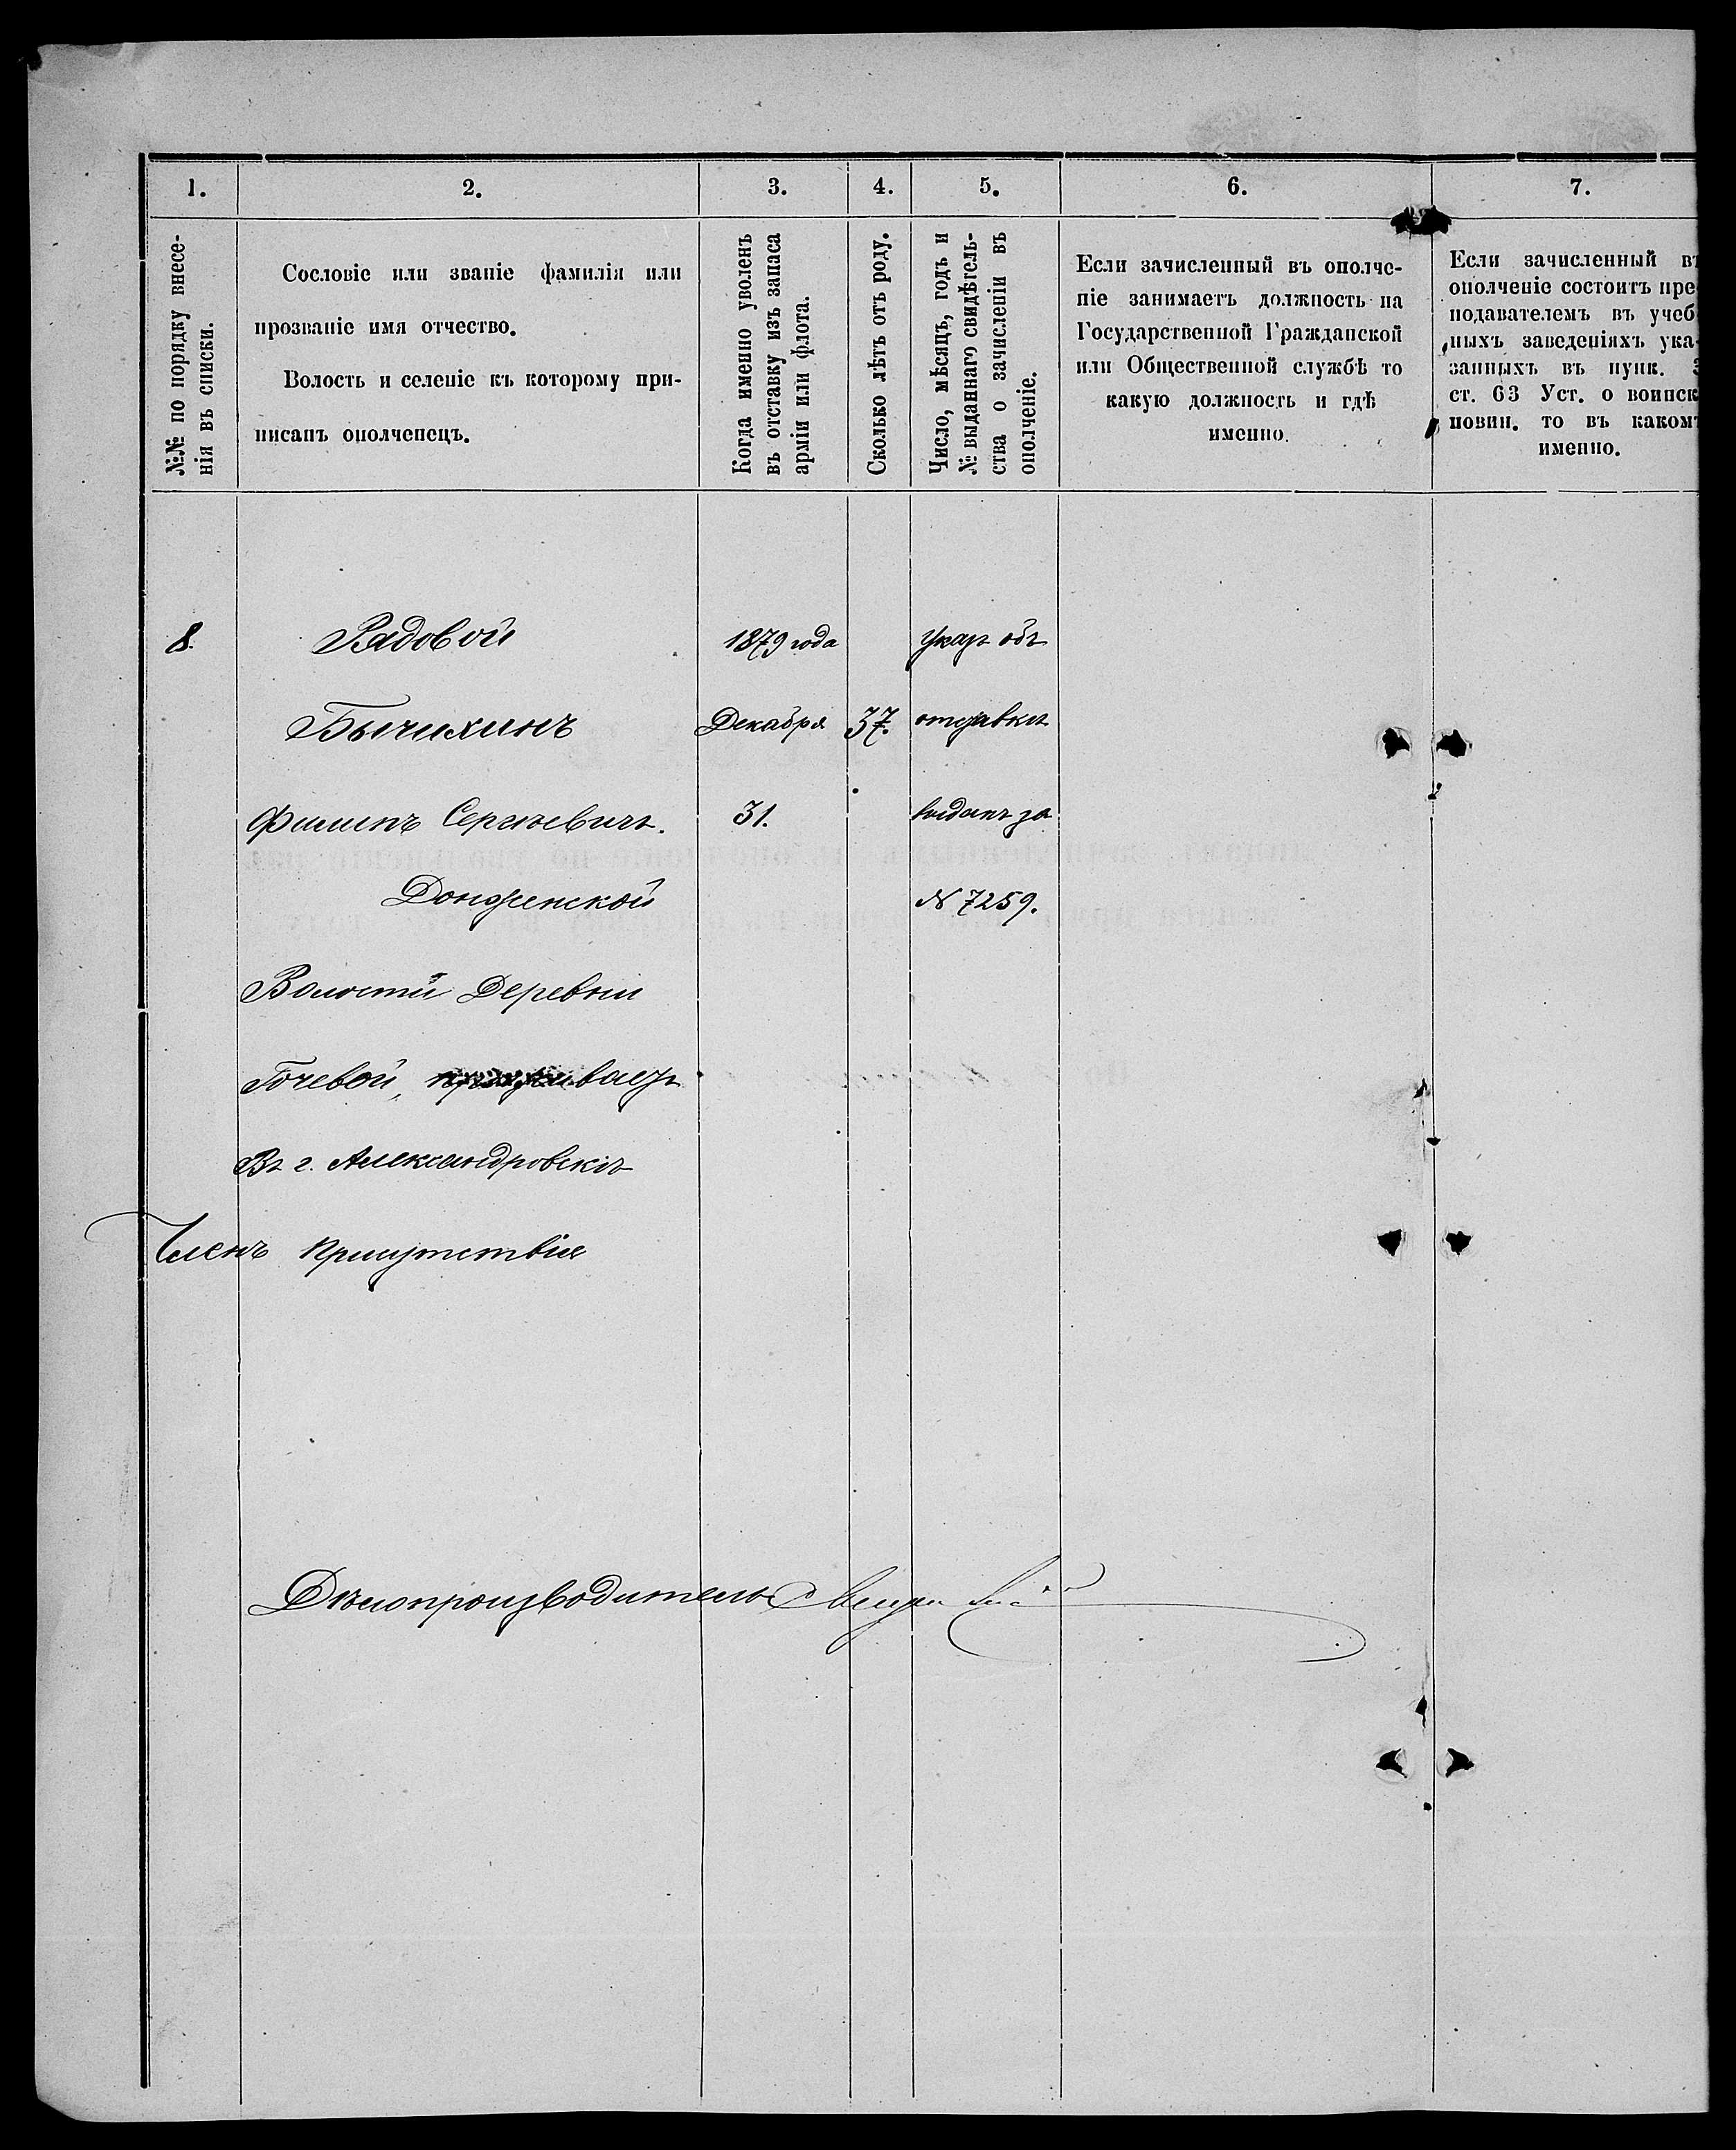 1.
2.
3.
4.
5.
6.
7.
№№ по порядку внесе-
нія въ списки.
Сословіе или званіе фамилія или
прозваніе имя отчество.
Волость и селеніе къ которому при-
писанъ ополченецъ.
Когда именно уволенъ
въ отставку изъ запаса
арміи или флота.
Сколько лѣтъ отъ роду.
Число, мѣсяцъ, годъ и
№ выданнаго свидѣтель-
ства о зачисленіи въ
ополченіе.
Если зачисленный въ ополче-
ніе занимаетъ должность на
Государственной Гражданской
или Общественной службѣ то
какую должность и гдѣ
именно.
Если зачисленный въ
ополченіе состоитъ пре
подавателемъ въ учеб
ныхъ заведеніяхъ ука-
занныхъ въ пунк. 3
ст. 63 Уст. о воинск
повин. то въ какомъ
именно.
8.
Рядовой
Бычихинъ
Филипъ Сергѣевичъ.
Волости Деревни
Гочевой, проживаетъ
Въ г. Александровскѣ
1879 года
Декабря
31.
37.
Указъ объ
отставки
выданъ за
№ 7259.
Членъ Присутствія
Дѣлопроизводитель